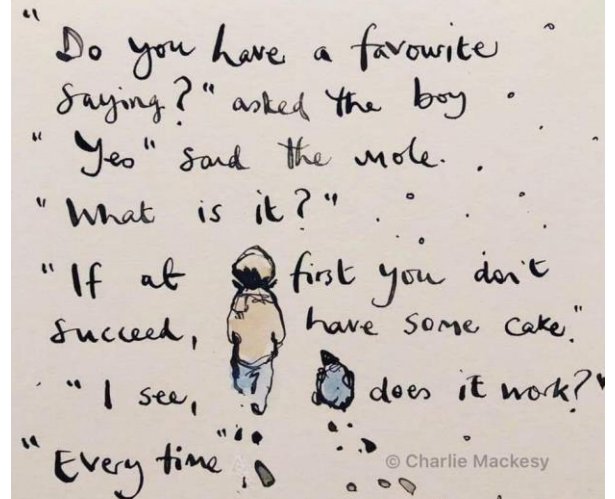 "Do you have a favourite
saying?" asked the boy
"Yes" said the mole.
"What is it?"
"If at first you don't
succeed, have some cake."
"I see, does it work?"
"Every time"
© Charlie Mackesy